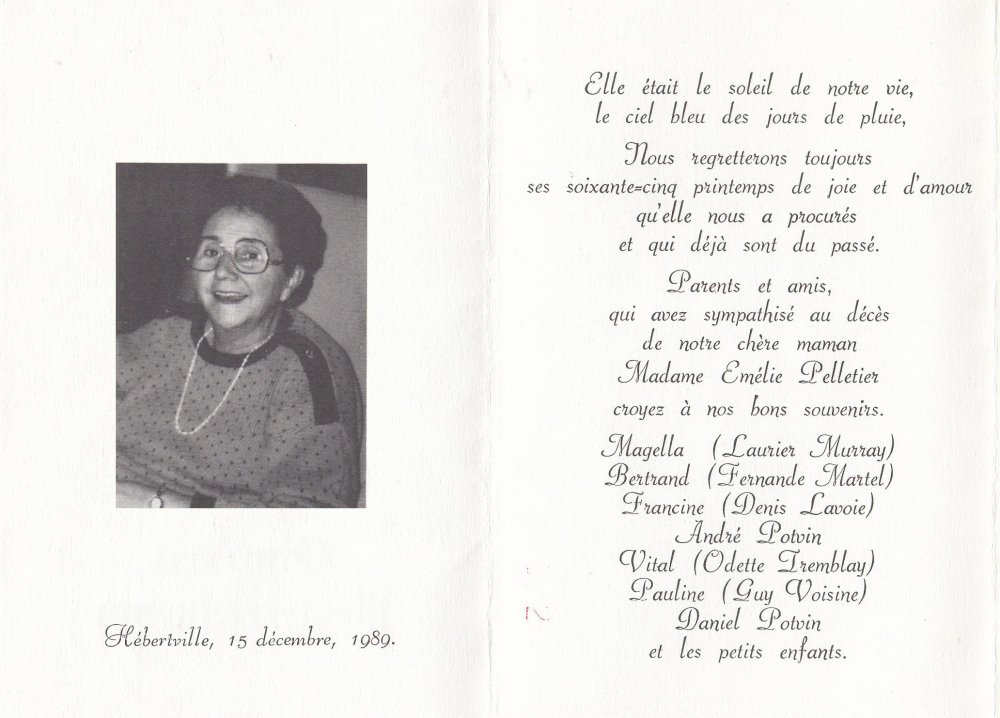 Hébertville, 15 décembre, 1989.
Elle était le soleil de notre vie,
le ciel bleu des jours de pluie,
Nous regretterons toujours
ses soixante-cinq printemps de joie et d'amour
qu'elle nous a procurés
et qui déjà sont du passé.
Parents et amis,
qui avez sympathisé au décès
de notre chère maman
Madame Emélie Pelletier
croyez à nos bons souvenirs.
Magella (Laurier Murray)
Bertrand (Fernande Martel)
Francine (Denis Lavoie)
André Potvin
Vital (Odette Tremblay)
Pauline (Guy Voisine)
Daniel Potvin
et les petits enfants.